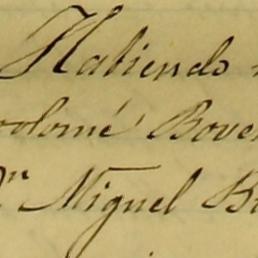 Habiendo
olomé Bove
Dn Miguel B